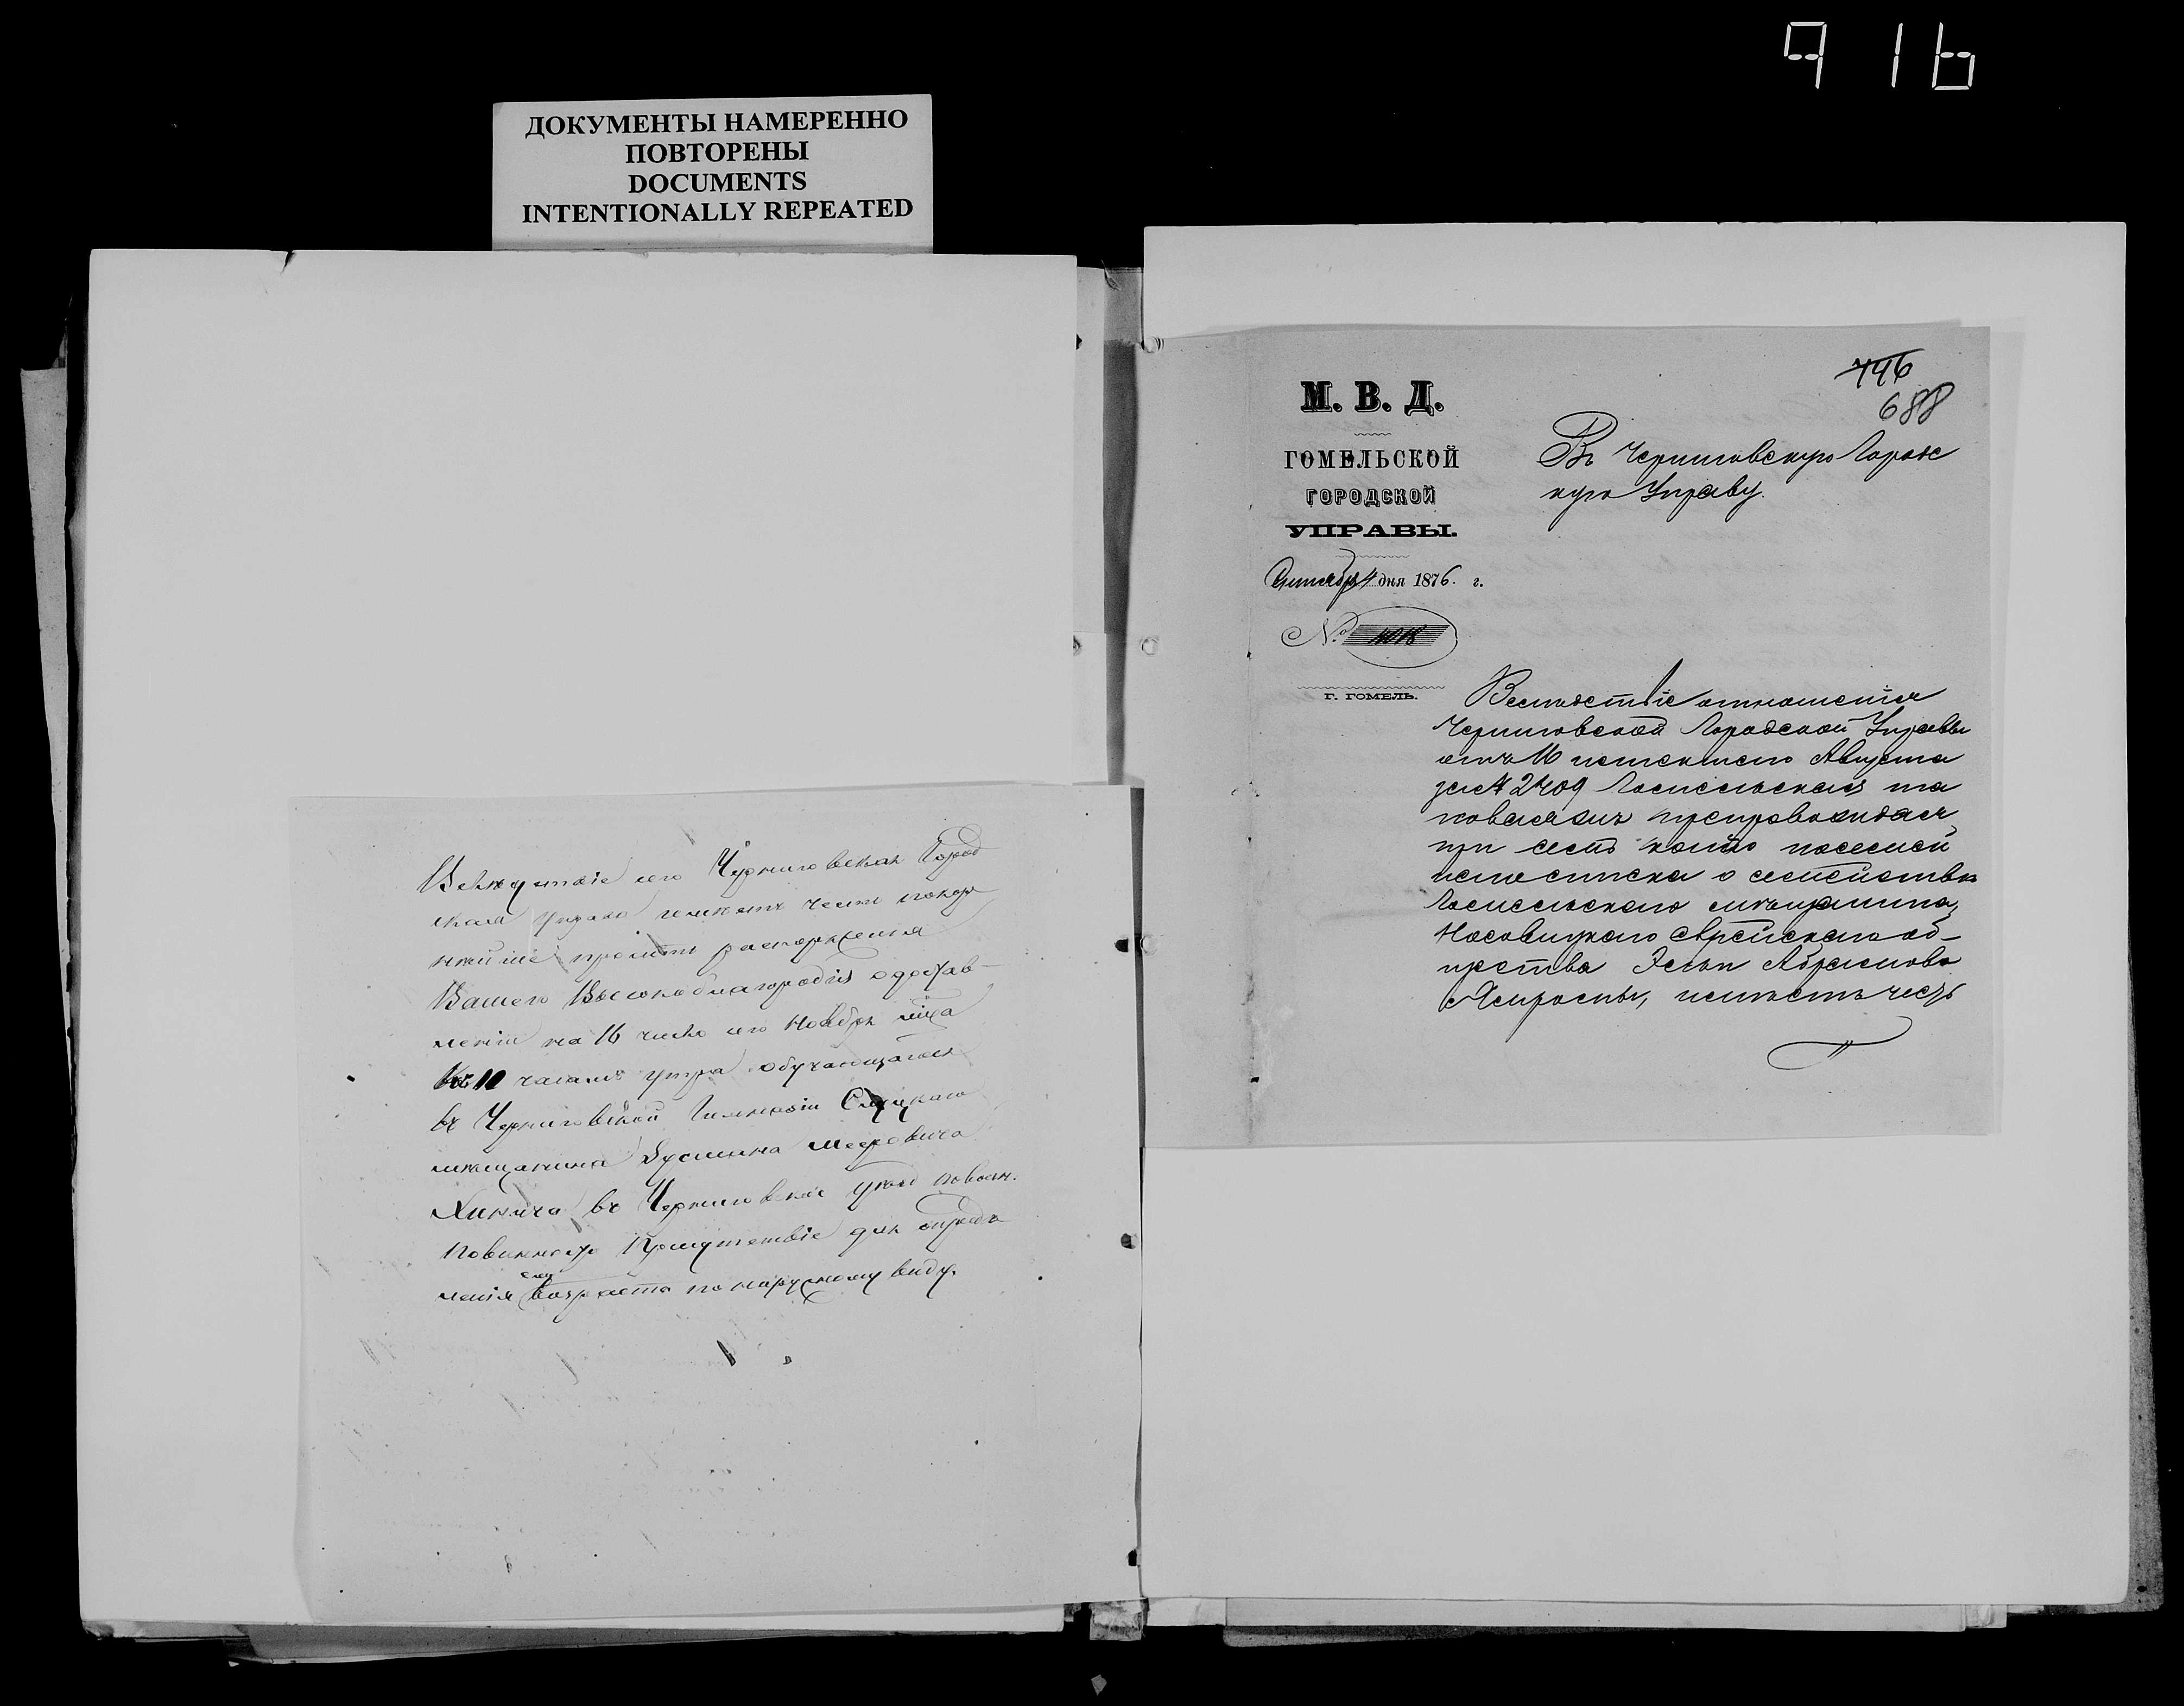 916
ДОКУМЕНТЫ НАМЕРЕННО
ПОВТОРЕНЫ
DOCUMENTS
INTENTIONALLY REPEATED
его Черниговская Город
ская Управа имѣетъ честь покор
нѣйше просить распоряженія
Вашего Высокоблагородія о достав-
леніи на 16 число сего Ноября мѣца
10 часамъ утра обучающагося
въ Черниговской Гимназіи Слуцкаго
мѣщанина Мееровича
въ Черниговское уѣзд по воин.
повинности Присутствіе для опредѣ
ленія его возраста по наружному виду.
446
688
М. В. Д.
ГОМЕЛЬСКОЙ
ГОРОДСКОЙ
УПРАВЫ.
4 дня 1876. г.
№
Г. ГОМЕЛЬ.
Въ Черниговскую Городс
кую Управу.
Вслѣдствіе отношенія
Черниговской Городской Управы
отъ 16 истекшаго Августа
за № 2409 Гомельская та
ковая имъ препровождая
при семъ копію посемей
наго списка о семействѣ
Гомельскаго мѣщанина,
Носовицкаго Еврейскаго об-
щества Эльи Абрамова
имѣетъ честь